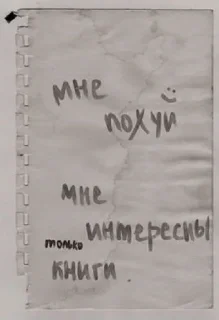 мне
похуй
мне
только интересны
книги